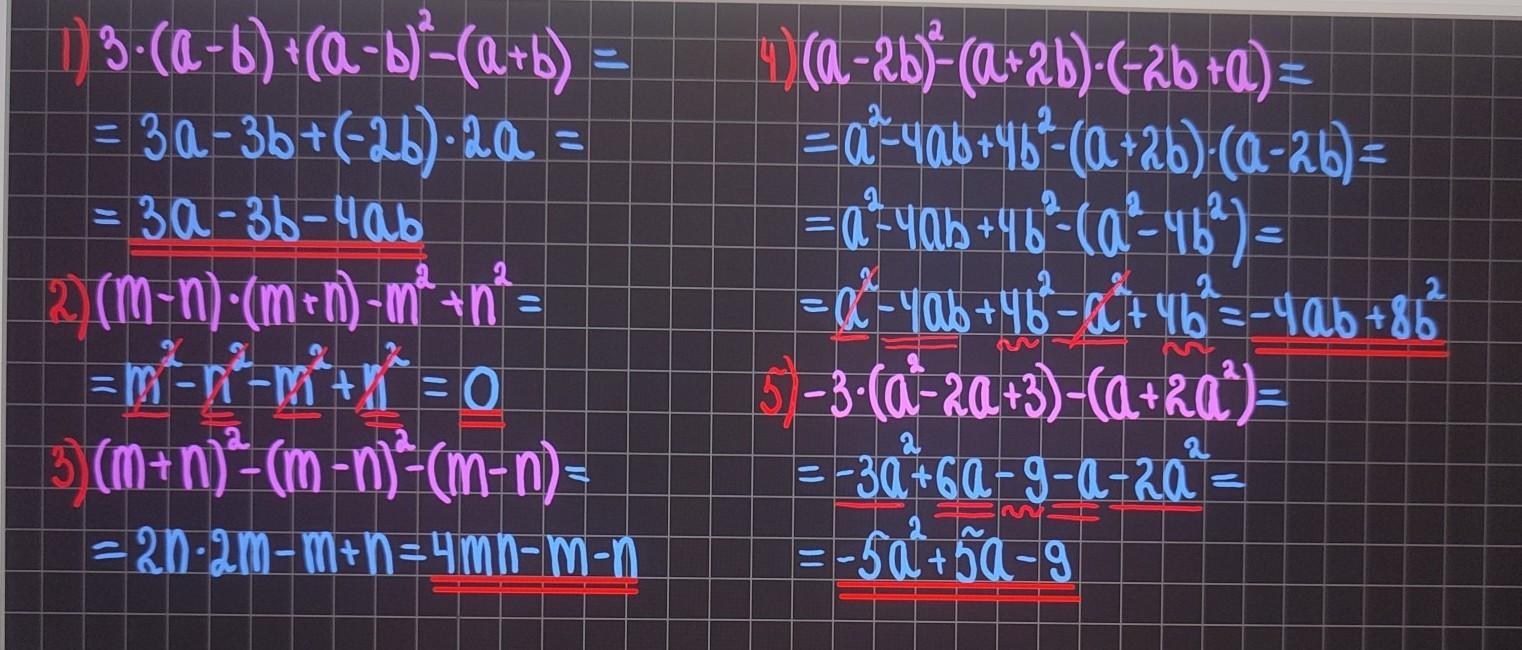 1) 3·(a-b)+(a-b)²-(a+b) =
= 3a-3b+(-2b)·2a =
= 3a-3b-4ab
2) (m-n)·(m+n)-m²+n² =
= m²-n²-m²+n² = 0
3) (m+n)²-(m-n)²-(m-n) =
= 2n·2m-m+n = 4mn-m-n
4) (a-2b)²-(a+2b)·(-2b+a) =
= a²-4ab+4b²-(a+2b)·(a-2b) =
= a²-4ab+4b²-(a²-4b²) =
= a²-4ab+4b²-a²+4b² = -4ab+8b²
5) -3·(a²-2a+3)-(a+2a²) =
= -3a²+6a-9-a-2a² =
= -5a²+5a-9